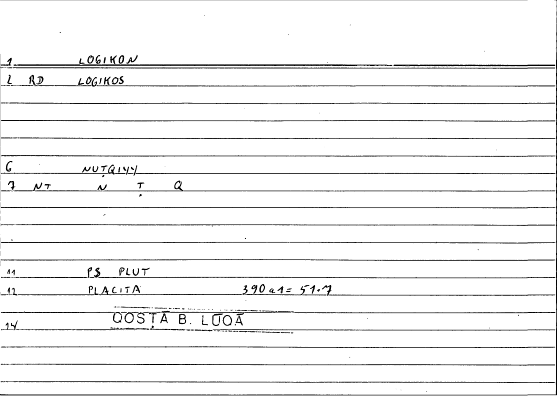 1 LOGIKON
2 RD LOGIKOS
6 NUṬQIYY
7 NT N Ṭ Q
11 PS PLUT
12 PLACITA 390a1 = 51.7
14 QOSṬĀ B. LŪQĀ